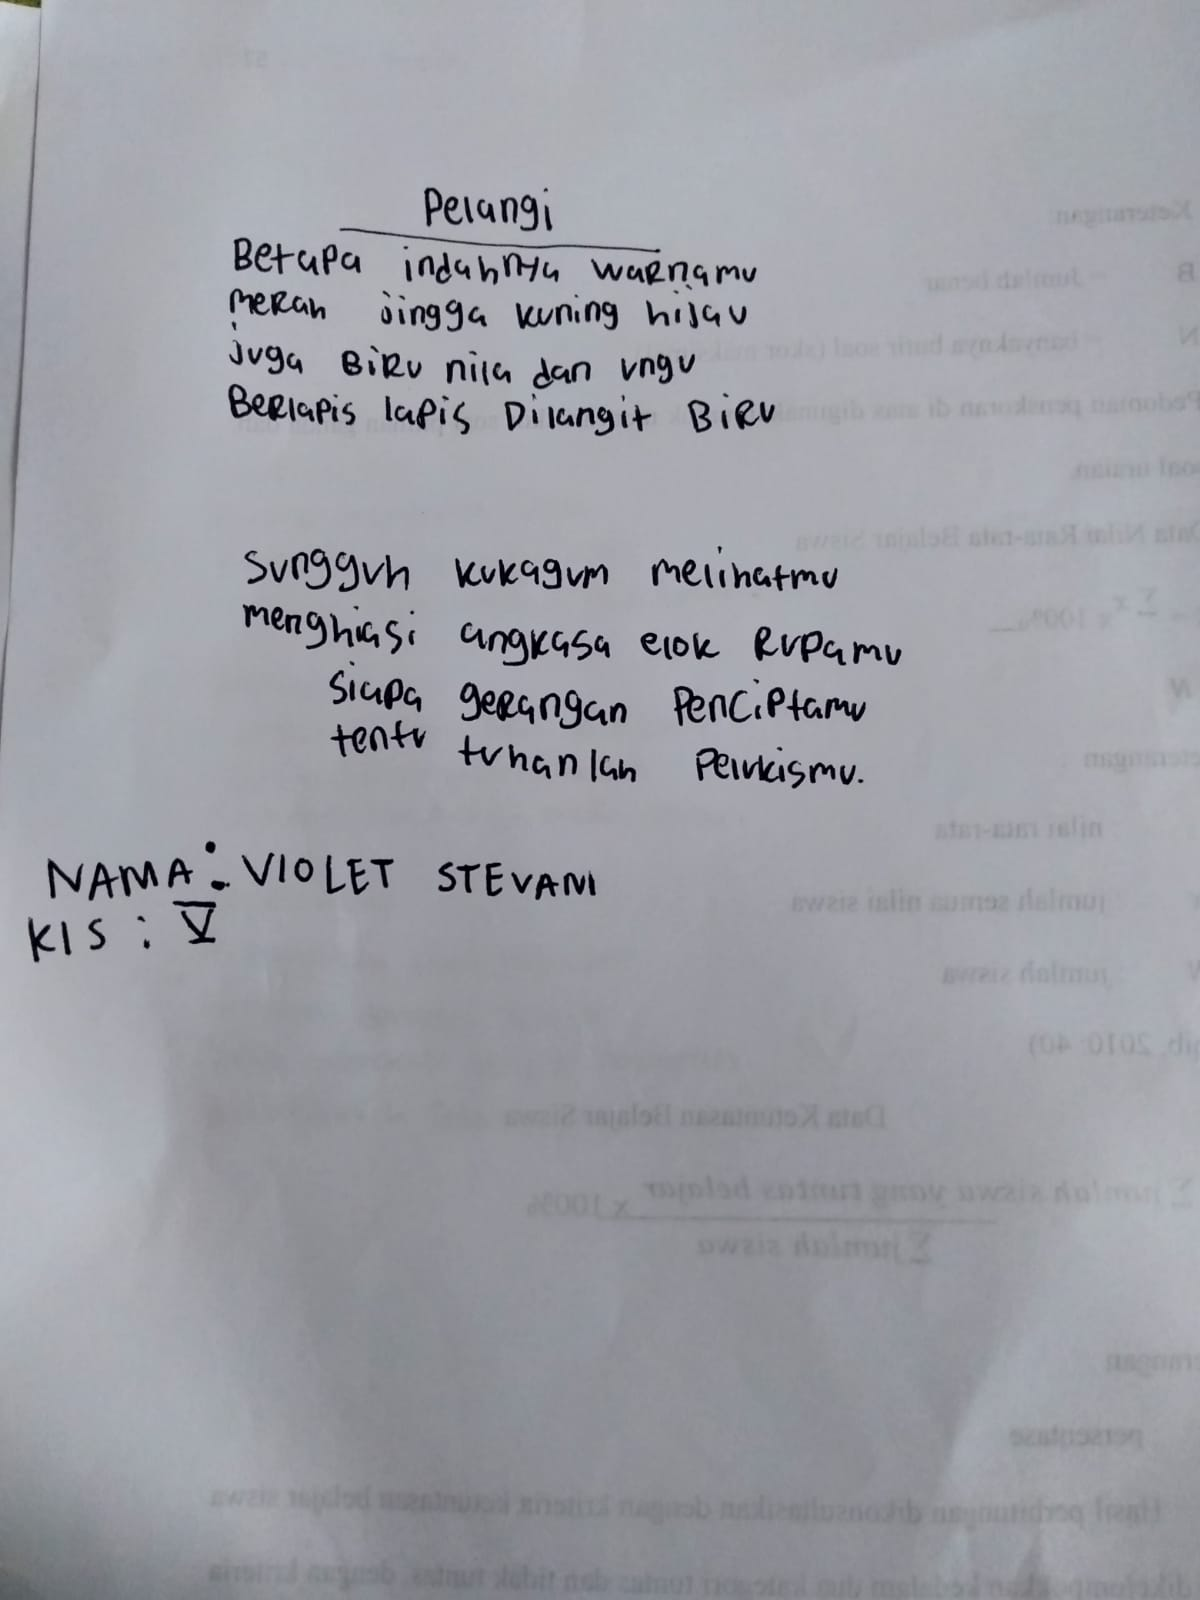 Pelangi
Betapa indahnya warnamu
merah jingga kuning hijau
juga Biru nila dan ungu
Berlapis lapis Dilangit Biru
Sungguh kukagum melihatmu
menghiasi angkasa elok Rupamu
Siapa gerangan Penciptamu
tentu tuhanlah Pelukismu.
NAMA : VIOLET STEVANI
Kls : V